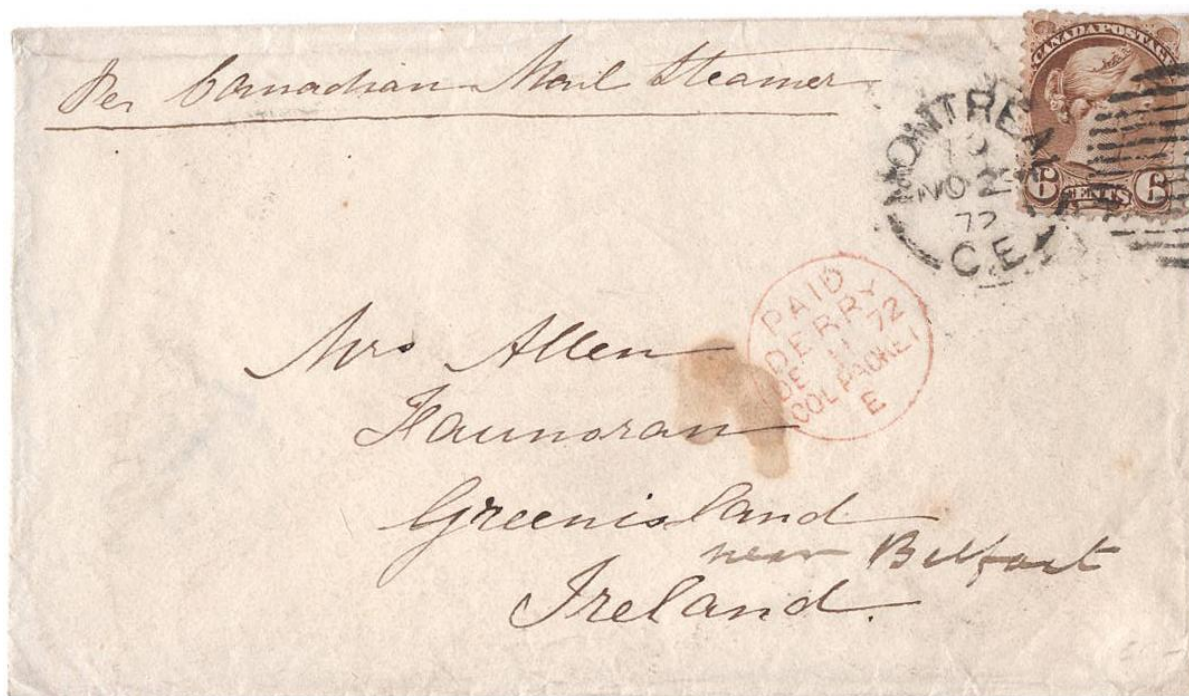 Per Canadian Mail Steamer
CANADA POSTAGE
6 CENTS 6
MONTREA
NO 2
72
C.E
PAID
DERRY
DE 11 72
COL PACKET
E
Mrs Allen
Greenisland
near Belfast
Ireland.